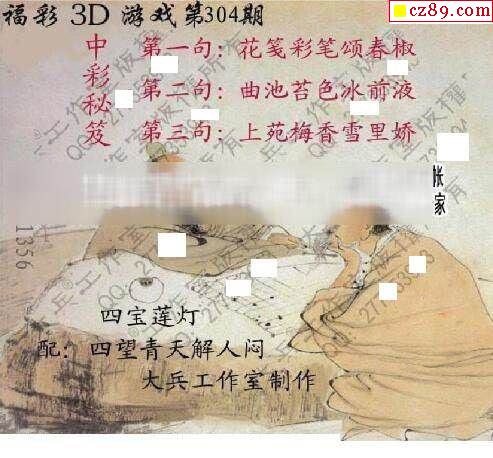 福彩 3D 游戏第304期
cz89.com
中彩秘笈
第一句：花笺彩笔颂春椒
第二句：曲池苔色冰前液
第三句：上苑梅香雪里娇
张家
1356
四宝莲灯
配：四望青天解人闷
大兵工作室制作